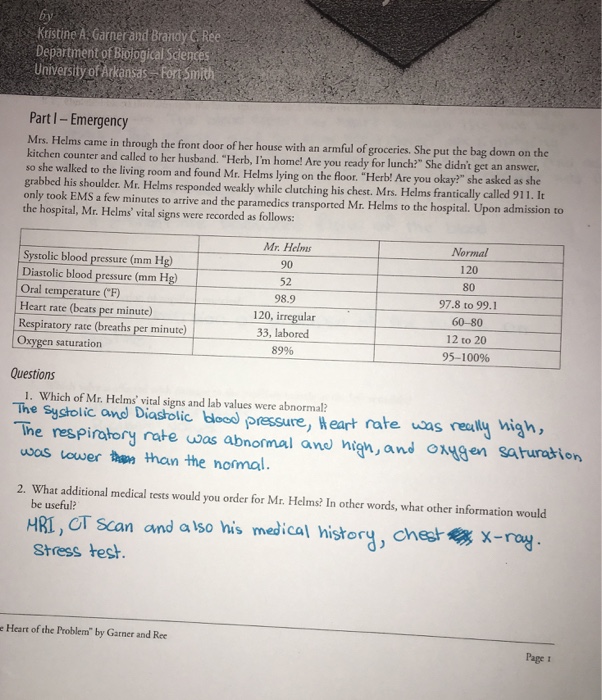 by
Kristine A. Garner and Brandy C. Ree
Department of Biological Sciences
University of Arkansas – Fort Smith
Part I – Emergency
Mrs. Helms came in through the front door of her house with an armful of groceries. She put the bag down on the
kitchen counter and called to her husband. "Herb, I'm home! Are you ready for lunch?" She didn't get an answer,
so she walked to the living room and found Mr. Helms lying on the floor. "Herb! Are you okay?" she asked as she
grabbed his shoulder. Mr. Helms responded weakly while clutching his chest. Mrs. Helms frantically called 911. It
only took EMS a few minutes to arrive and the paramedics transported Mr. Helms to the hospital. Upon admission to
the hospital, Mr. Helms' vital signs were recorded as follows:
Mr. Helms Normal
Systolic blood pressure (mm Hg) 90 120
Diastolic blood pressure (mm Hg) 52 80
Oral temperature (°F) 98.9 97.8 to 99.1
Heart rate (beats per minute) 120, irregular 60–80
Respiratory rate (breaths per minute) 33, labored 12 to 20
Oxygen saturation 89% 95–100%
Questions
1. Which of Mr. Helms' vital signs and lab values were abnormal?
The Systolic and Diastolic blood pressure, Heart rate was really high,
The respiratory rate was abnormal and high, and oxygen saturation
was lower than the normal.
2. What additional medical tests would you order for Mr. Helms? In other words, what other information would
be useful?
MRI, CT Scan and also his medical history, chest x-ray.
Stress test.
e Heart of the Problem" by Garner and Ree
Page 1